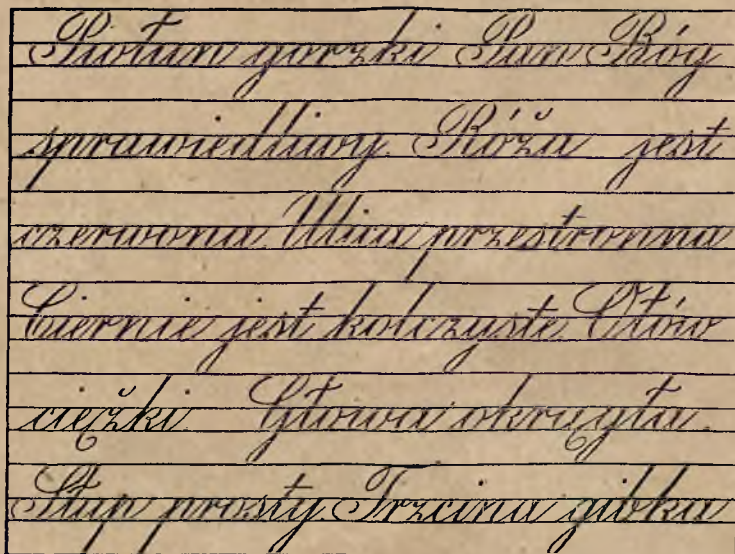 Piołun gorzki Pan Bóg
sprawiedliwy. Róża jest
czerwona. Ulica przestronna
Ciernie jest kolczyste. Ołów
ciężki. Głowa okrągła.
Słup prosty. Trzcina gibka